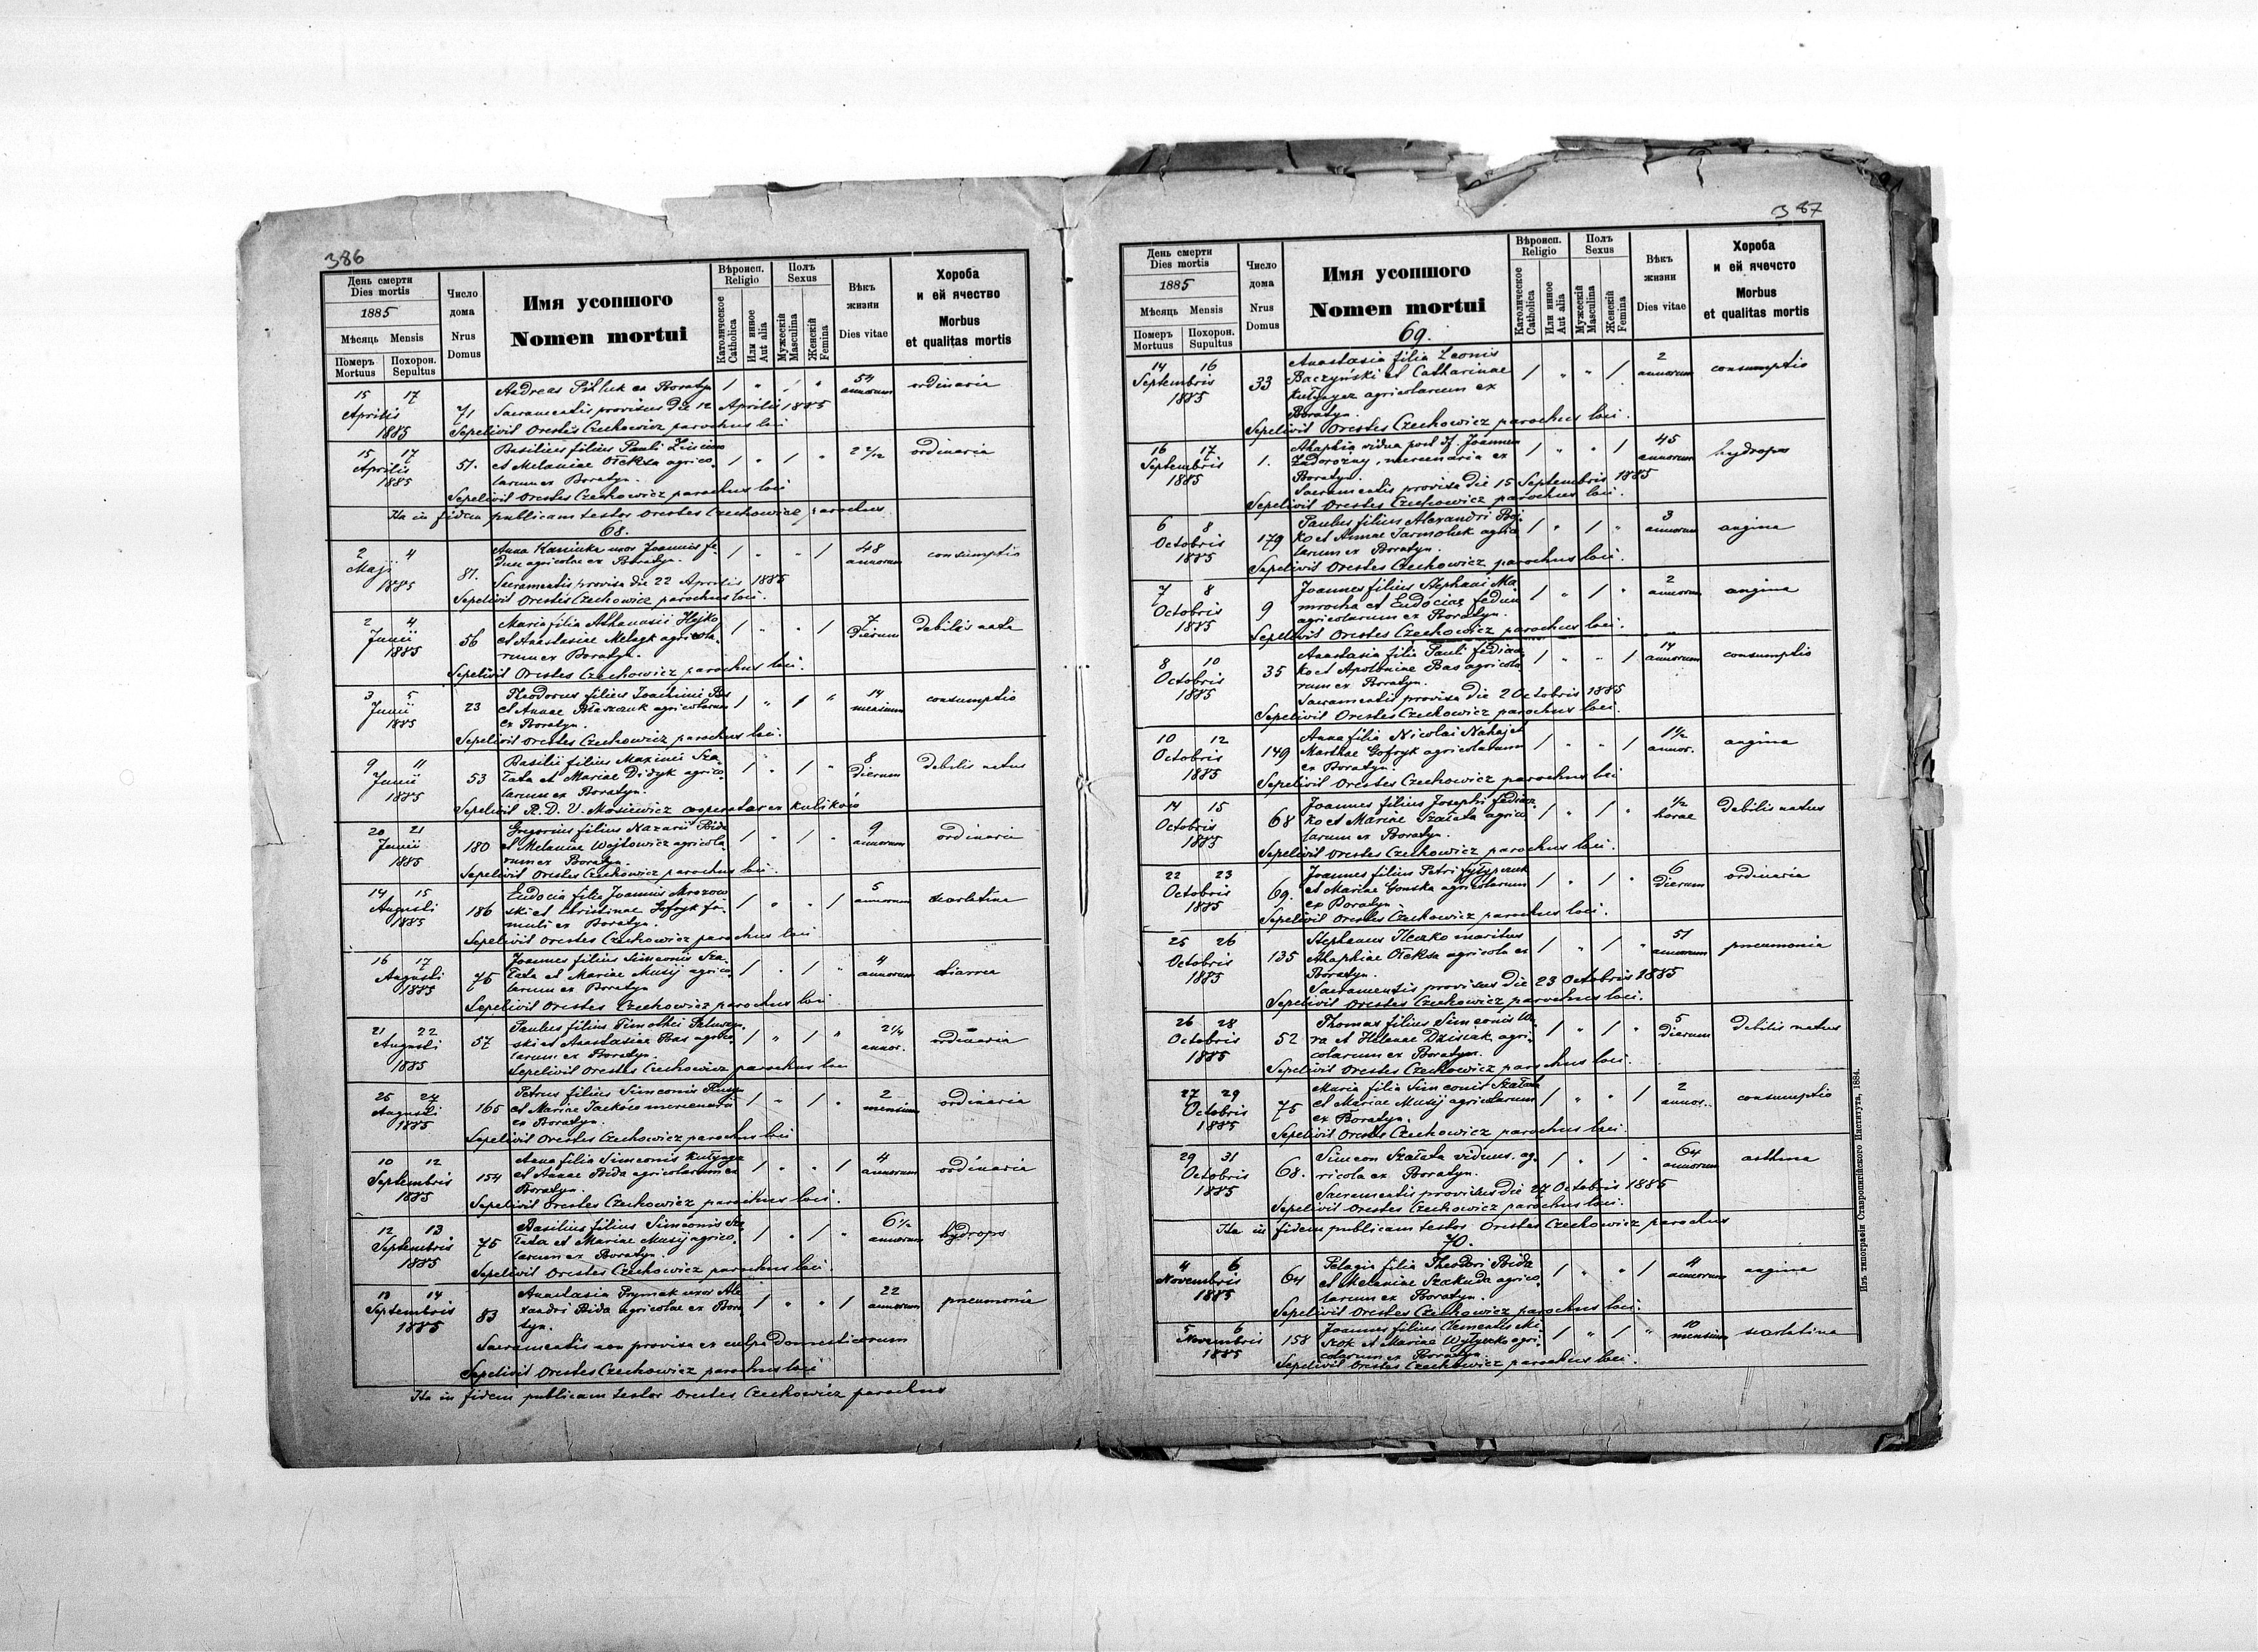 386
День смерти
Dies mortis
1885
Мѣсяць Mensis
Померъ Похорон.
Mortuus Sepultus
Число
дома
Nrus
Domus
Имя усопшого
Nomen mortui
Вѣроисп.
Religio
Католическое
Catholica
Или инное
Aut alia
Полъ
Sexus
Мужескій
Masculina
Женскій
Femina
Вѣкъ
жизни
Dies vitae
Хороба
и ей ячество
Morbus
et qualitas mortis
15 17 Andreas ex Boratyn / " / " 54 ordinaria
Aprilis 71 Sacramentis provisus die 12 Aprilis 1885 annorum
1885 Sepelivit Orestes Czechowicz parochus loci
15 17 Basilius filius Pauli
Aprilis 51. et Melaniae Ołeksa agrico- / " / " 2 2/12 ordinaria
1885 larum ex Boratyn.
Sepelivit Orestes Czechowicz parochus loci
Ita in fidem publicam testor Orestes Czechowicz parochus
68.
2 4 Anna Kaminka uxor Joannis fe- / " " / 48 consumptio
Maji 81. dun agricolae ex Boratyn. annorum
1885 Sacramentis provisa die 22 Aprilis 1885
Sepelivit Orestes Czechowicz parochus loci.
2 4 Maria filia Athanasii Hojko 7
Junii 56 et Anastasiae Melnyk agricola- / " " / dierum debilis nata
1885 rum ex Boratyn.
Sepelivit Orestes Czechowicz parochus loci.
3 5 Theodorus filius Joachimi Bas 14
Junii 23 et Annae Błaszczuk agricolarum / " / " mensium consumptio
1885 ex Boratyn.
Sepelivit Orestes Czechowicz parochus loci.
9 11 Basilii filius Maximi Sza- 8
Junii 53 łata et Mariae Didyk agrico- / " / " dierum debilis natus
1885 larum ex Boratyn.
Sepelivit R. D. V. Mosiewicz cooperator ex Kulików
20 21 Gregorius filius Nazarii Bida 9
Junii 180 et Melaniae Wojtowicz agricola- / " / " annorum ordinaria
1885 rum ex Boratyn.
Sepelivit Orestes Czechowicz parochus loci.
14 15 Eudocia filia Joannis Mrozow- 5
Augusti 186 ski et Christinae Gofryk fa- / " " / annorum scarlatina
1885 muli ex Boratyn.
Sepelivit Orestes Czechowicz parochus loci
16 17 Joannes filius Simeonis Sza- 4
Augusti 75 łata et Mariae Musij agrico- / " / " annorum diarrea
1885 larum ex Boratyn
Sepelivit Orestes Czechowicz parochus loci
21 22 Paulus filius Timothei 2 1/4
Augusti 57 ski et Anastasiae Bas agrico- / " / " annor. ordinaria
1885 larum ex Boratyn.
Sepelivit Orestes Czechowicz parochus loci
25 27 Petrus filius Simeonis 2
Augusti 165 et Mariae Jacków mercenarii / " / " mensium ordinaria
1885 ex Boratyn.
Sepelivit Orestes Czechowicz parochus loci
10 12 Anna filia Simeonis Kułynycz 4
Septembris 154 et Annae Bida agricolarum ex / " " / annorum ordinaria
1885 Boratyn.
Sepelivit Orestes Czechowicz parochus loci.
12 13 Basilius filius Simeonis Sza- 6 1/2
Septembris 75 łata et Mariae Musij agrico- / " / " annorum hydrops
1885 larum ex Boratyn.
Sepelivit Orestes Czechowicz parochus loci.
13 14 Anastasia Prymak uxor Ale- 22
Septembris 83 xandri Bida agricolae ex Bora- / " " / annorum pneumonia
1885 tyn.
Sacramentis non provisa ex culpa domesticorum
Sepelivit Orestes Czechowicz parochus loci
Ita in fidem publicam testor Orestes Czechowicz parochus
387
День смерти
Dies mortis
1885
Мѣсяць Mensis
Померъ Похорон.
Mortuus Supultus
Число
дома
Nrus
Domus
Имя усопшого
Nomen mortui
69.
Вѣроисп.
Religio
Католическое
Catholica
Или инное
Aut alia
Полъ
Sexus
Мужескій
Masculina
Женскій
Femina
Вѣкъ
жизни
Dies vitae
Хороба
и ей ячечсто
Morbus
et qualitas mortis
14 16 Anastasia filia Leonis 2
Septembris 33 Baczyński et Catharinae / " " / annorum consumptio
1885 Kułynycz agricolarum ex
Boratyn.
Sepelivit Orestes Czechowicz parochus loci.
16 17 Ahaphia vidua post df. Joannem 45
Septembris 1. Zadorozny, mercenaria ex / " " / annorum hydrops
1885 Boratyn.
Sacramentis provisa die 15 Septembris 1885
Sepelivit Orestes Czechowicz parochus loci.
6 8 Paulus filius Alexandri Boj- 3
Octobris 179 ko et Annae Jarmoluk agrico- / " / " annorum angina
1885 larum ex Boratyn.
Sepelivit Orestes Czechowicz parochus loci.
7 8 Joannes filius Stephani Ma- 2
Octobris 9 mrocha et Eudociae fedun / " / " annorum angina
1885 agricolarum ex Boratyn.
Sepelivit Orestes Czechowicz parochus loci.
8 10 Anastasia filia Pauli fediasz- 14
Octobris 35 ko et Apoloniae Bas agricola- / " " / annorum consumptio
1885 rum ex Boratyn.
Sacramentis provisa die 2 Octobris 1885
Sepelivit Orestes Czechowicz parochus loci.
10 12 Anna filia Nicolai Nahaj et 1 1/2
Octobris 149 Marthae Gofryk agricolarum / " " / annor. angina
1885 ex Boratyn.
Sepelivit Orestes Czechowicz parochus loci
14 15 Joannes filius Josephi fediasz- 1/2
Octobris 68 ko et Mariae Szałata agrico- / " / " horae debilis natus
1885 larum ex Boratyn.
Sepelivit Orestes Czechowicz parochus loci.
22 23 Joannes filius Petri 6
Octobris 69. et Mariae Gonska agricolarum / " / " dierum ordinaria
1885 ex Boratyn.
Sepelivit Orestes Czechowicz parochus loci.
25 26 Stephanus Ileczko maritus 51
Octobris 135 Ahaphiae Ołeksa agricola ex / " / " annorum pneumonia
1885 Boratyn.
Sacramentis provisus die 23 Octobris 1885
Sepelivit Orestes Czechowicz parochus loci.
26 28 Thomas filius Simeonis 5
Octobris 52 ra et Helenae Dzisiak agri- / " / " dierum debilis natus
1885 colarum ex Boratyn.
Sepelivit Orestes Czechowicz parochus loci.
27 29 Maria filia Simeonis Szałata 2
Octobris 75 et Mariae Musij agricolarum / " " / annor. consumptio
1885 ex Boratyn.
Sepelivit Orestes Czechowicz parochus loci.
29 31 Simeon Szałata viduus, ag- 64
Octobris 68. ricola ex Boratyn. / " / " annorum asthma
1885 Sacramentis provisus die 27 Octobris 1885
Sepelivit Orestes Czechowicz parochus loci.
Ita in fidem publicam testor Orestes Czechowicz parochus
70.
4 6 Pelagia filia Theodori Bida 4
Novembris 64 et Melaniae Szakuda agrico- / " " / annorum angina
1885 larum ex Boratyn.
Sepelivit Orestes Czechowicz parochus loci.
5 6 Joannes filius Clementis Mi- 10
Novembris 158 et Mariae agri- / " / " mensium scarlatina
1885 colarum ex Boratyn
Sepelivit Orestes Czechowicz parochus loci.
Изъ типографіи Ставропигійского Института, 1884.